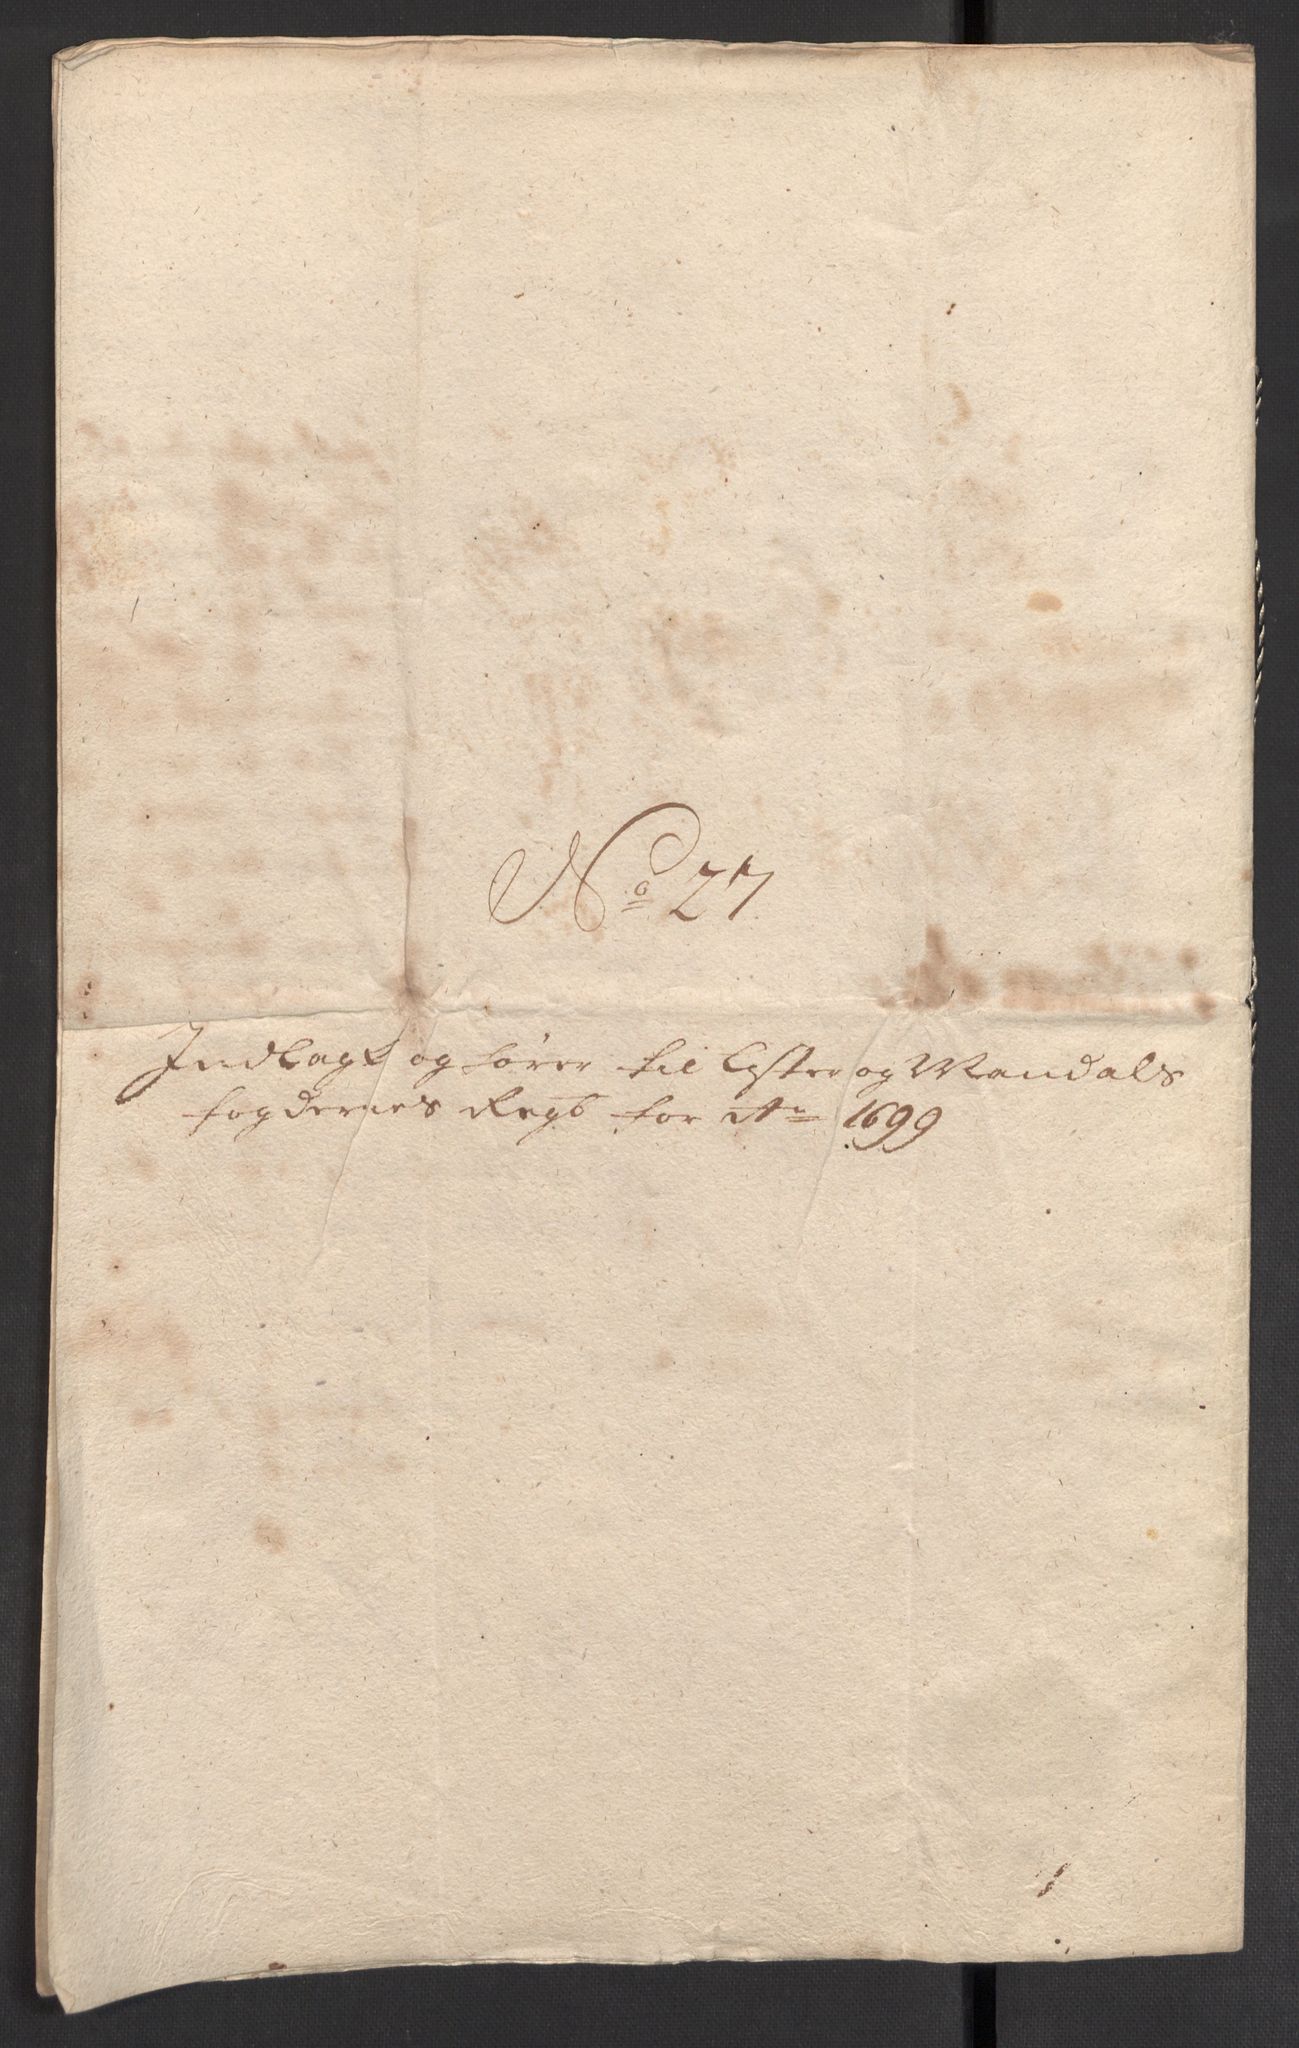 No 27
Indlagt og hører til Lyster og Mandals
fogderies Regs for Ao 1699